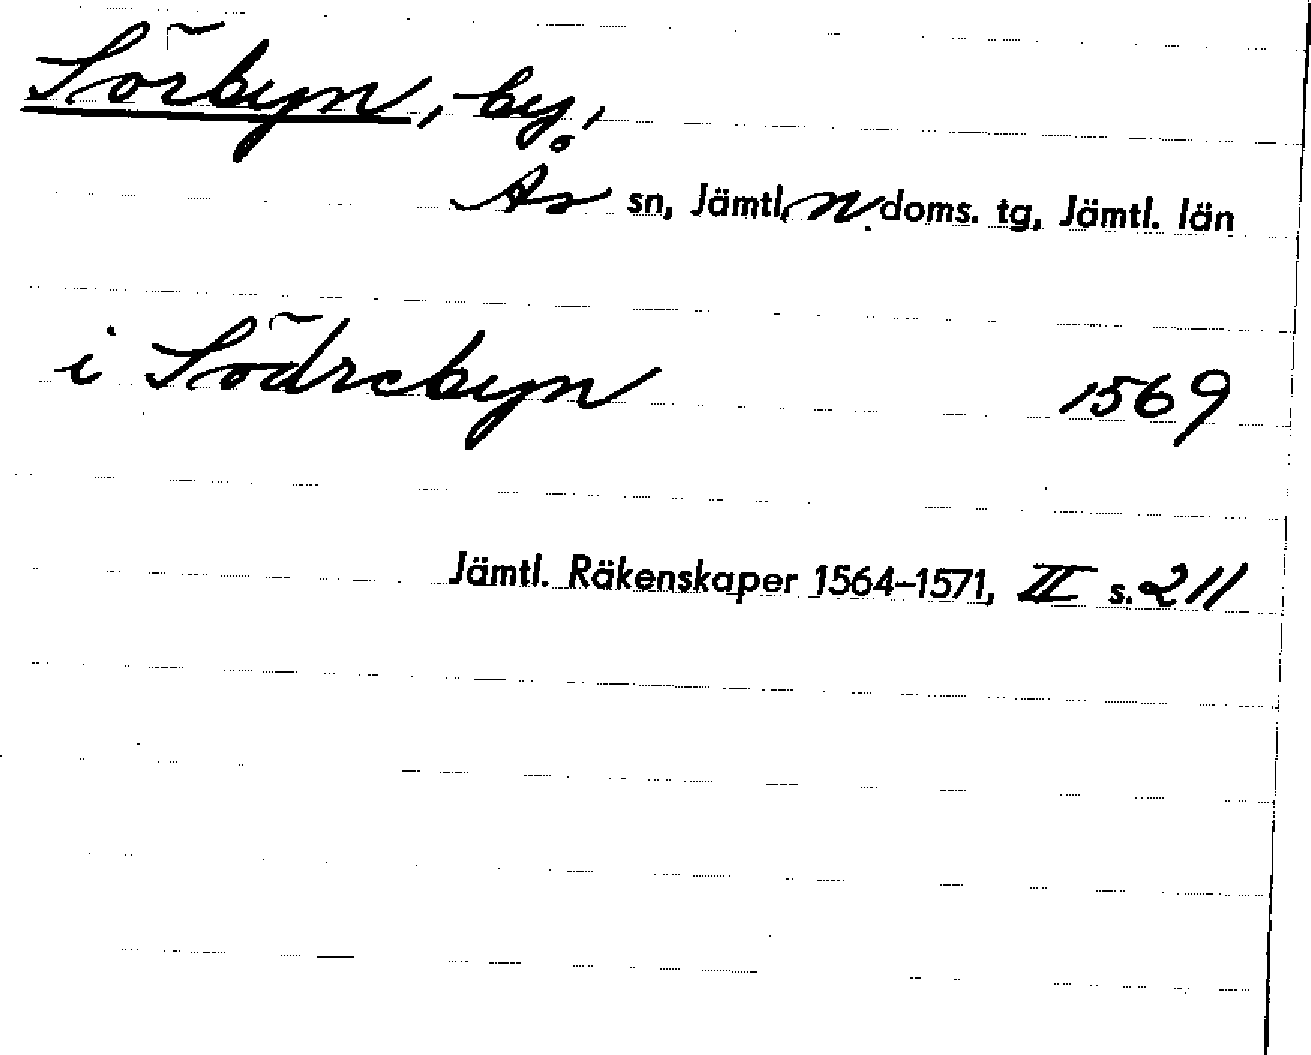 Sörbyn, by!
Ås sn, Jämtl. n. doms. tg, Jämtl. län
i Södrebyn 1569
Jämtl. Räkenskaper 1564–1571, II s. 211